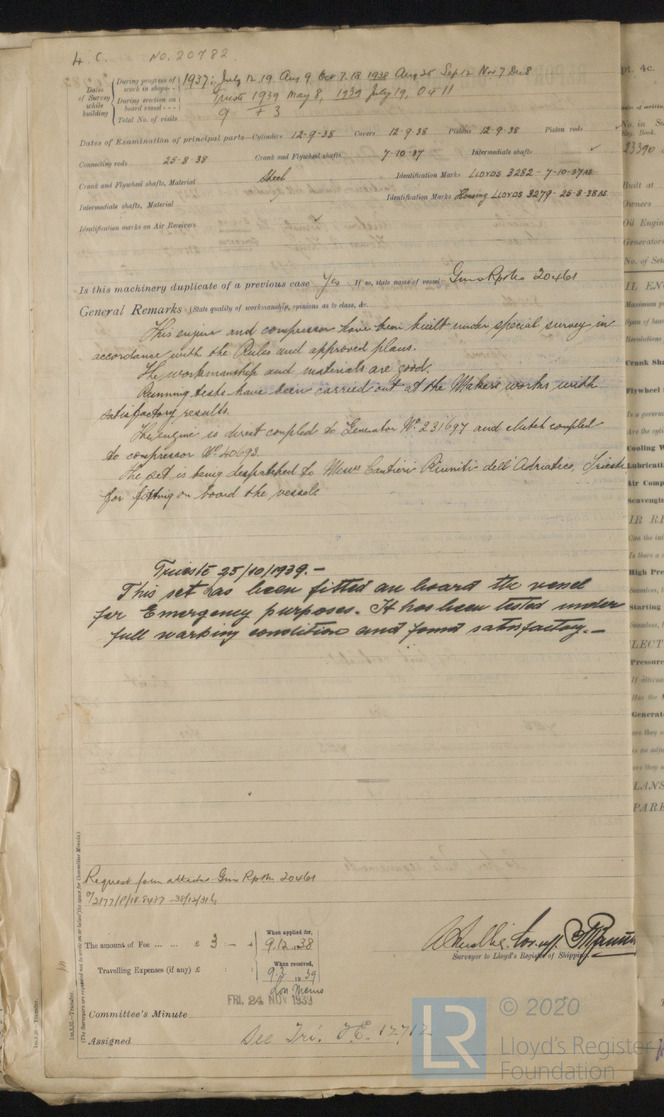 4 c. No. 20782
Dates of Survey while building
During progress of work in shops - - 1937: July 12.19 Aug 9. Oct 7.13 1938 Aug 25 Sep 12 Nov 7 Dec 8
During erection on board vessel - - - Trieste 1939 May 8, 1939 July 19, Oct 11
Total No. of visits 9 + 3
Dates of Examination of principal parts—Cylinders 12-9-38 Covers 12-9-38 Pistons 12-9-38 Piston rods
Connecting rods 25-8-38 Crank and Flywheel shafts 7-10-37 Intermediate shafts
Crank and Flywheel shafts, Material Steel Identification Marks LLOYDS 3282 - 7-10-37
Intermediate shafts, Material Identification Marks Housing LLOYDS 3279 - 25-8-38
Identification marks on Air Receivers
Is this machinery duplicate of a previous case Yes If so, state name of vessel 20461
General Remarks (State quality of workmanship, opinions as to class, &c.
This engine and compressor have been built under special survey in
accordance with the Rules and approved plans.
The workmanship and materials are good.
Running tests have been carried out at the Makers works with
satisfactory results.
The engine is direct coupled to Generator No 231697 and clutch coupled
to compressor No 40693.
The set is being despatched to Messrs Cantieri Riuniti dell'Adriatico, Trieste
for fitting on board the vessel.
Trieste 25/10/1939.-
This set has been fitted on board the vessel
for Emergency purposes. It has been tested under
full working condition and found satisfactory.-
Request form attached 20461
The amount of Fee ... ... £ 3 - :
When applied for, 9.12.38
Travelling Expenses (if any) £
When received, 19 39
Surveyor to Lloyd's Register of Shipping.
FRI. 24 NOV 1939
Committee's Minute
Assigned See Tri. J.E. 12712
(The Surveyors are requested not to write on or below the space for Committee Minute.)
© 2020
Lloyd's Register
Foundation
LR